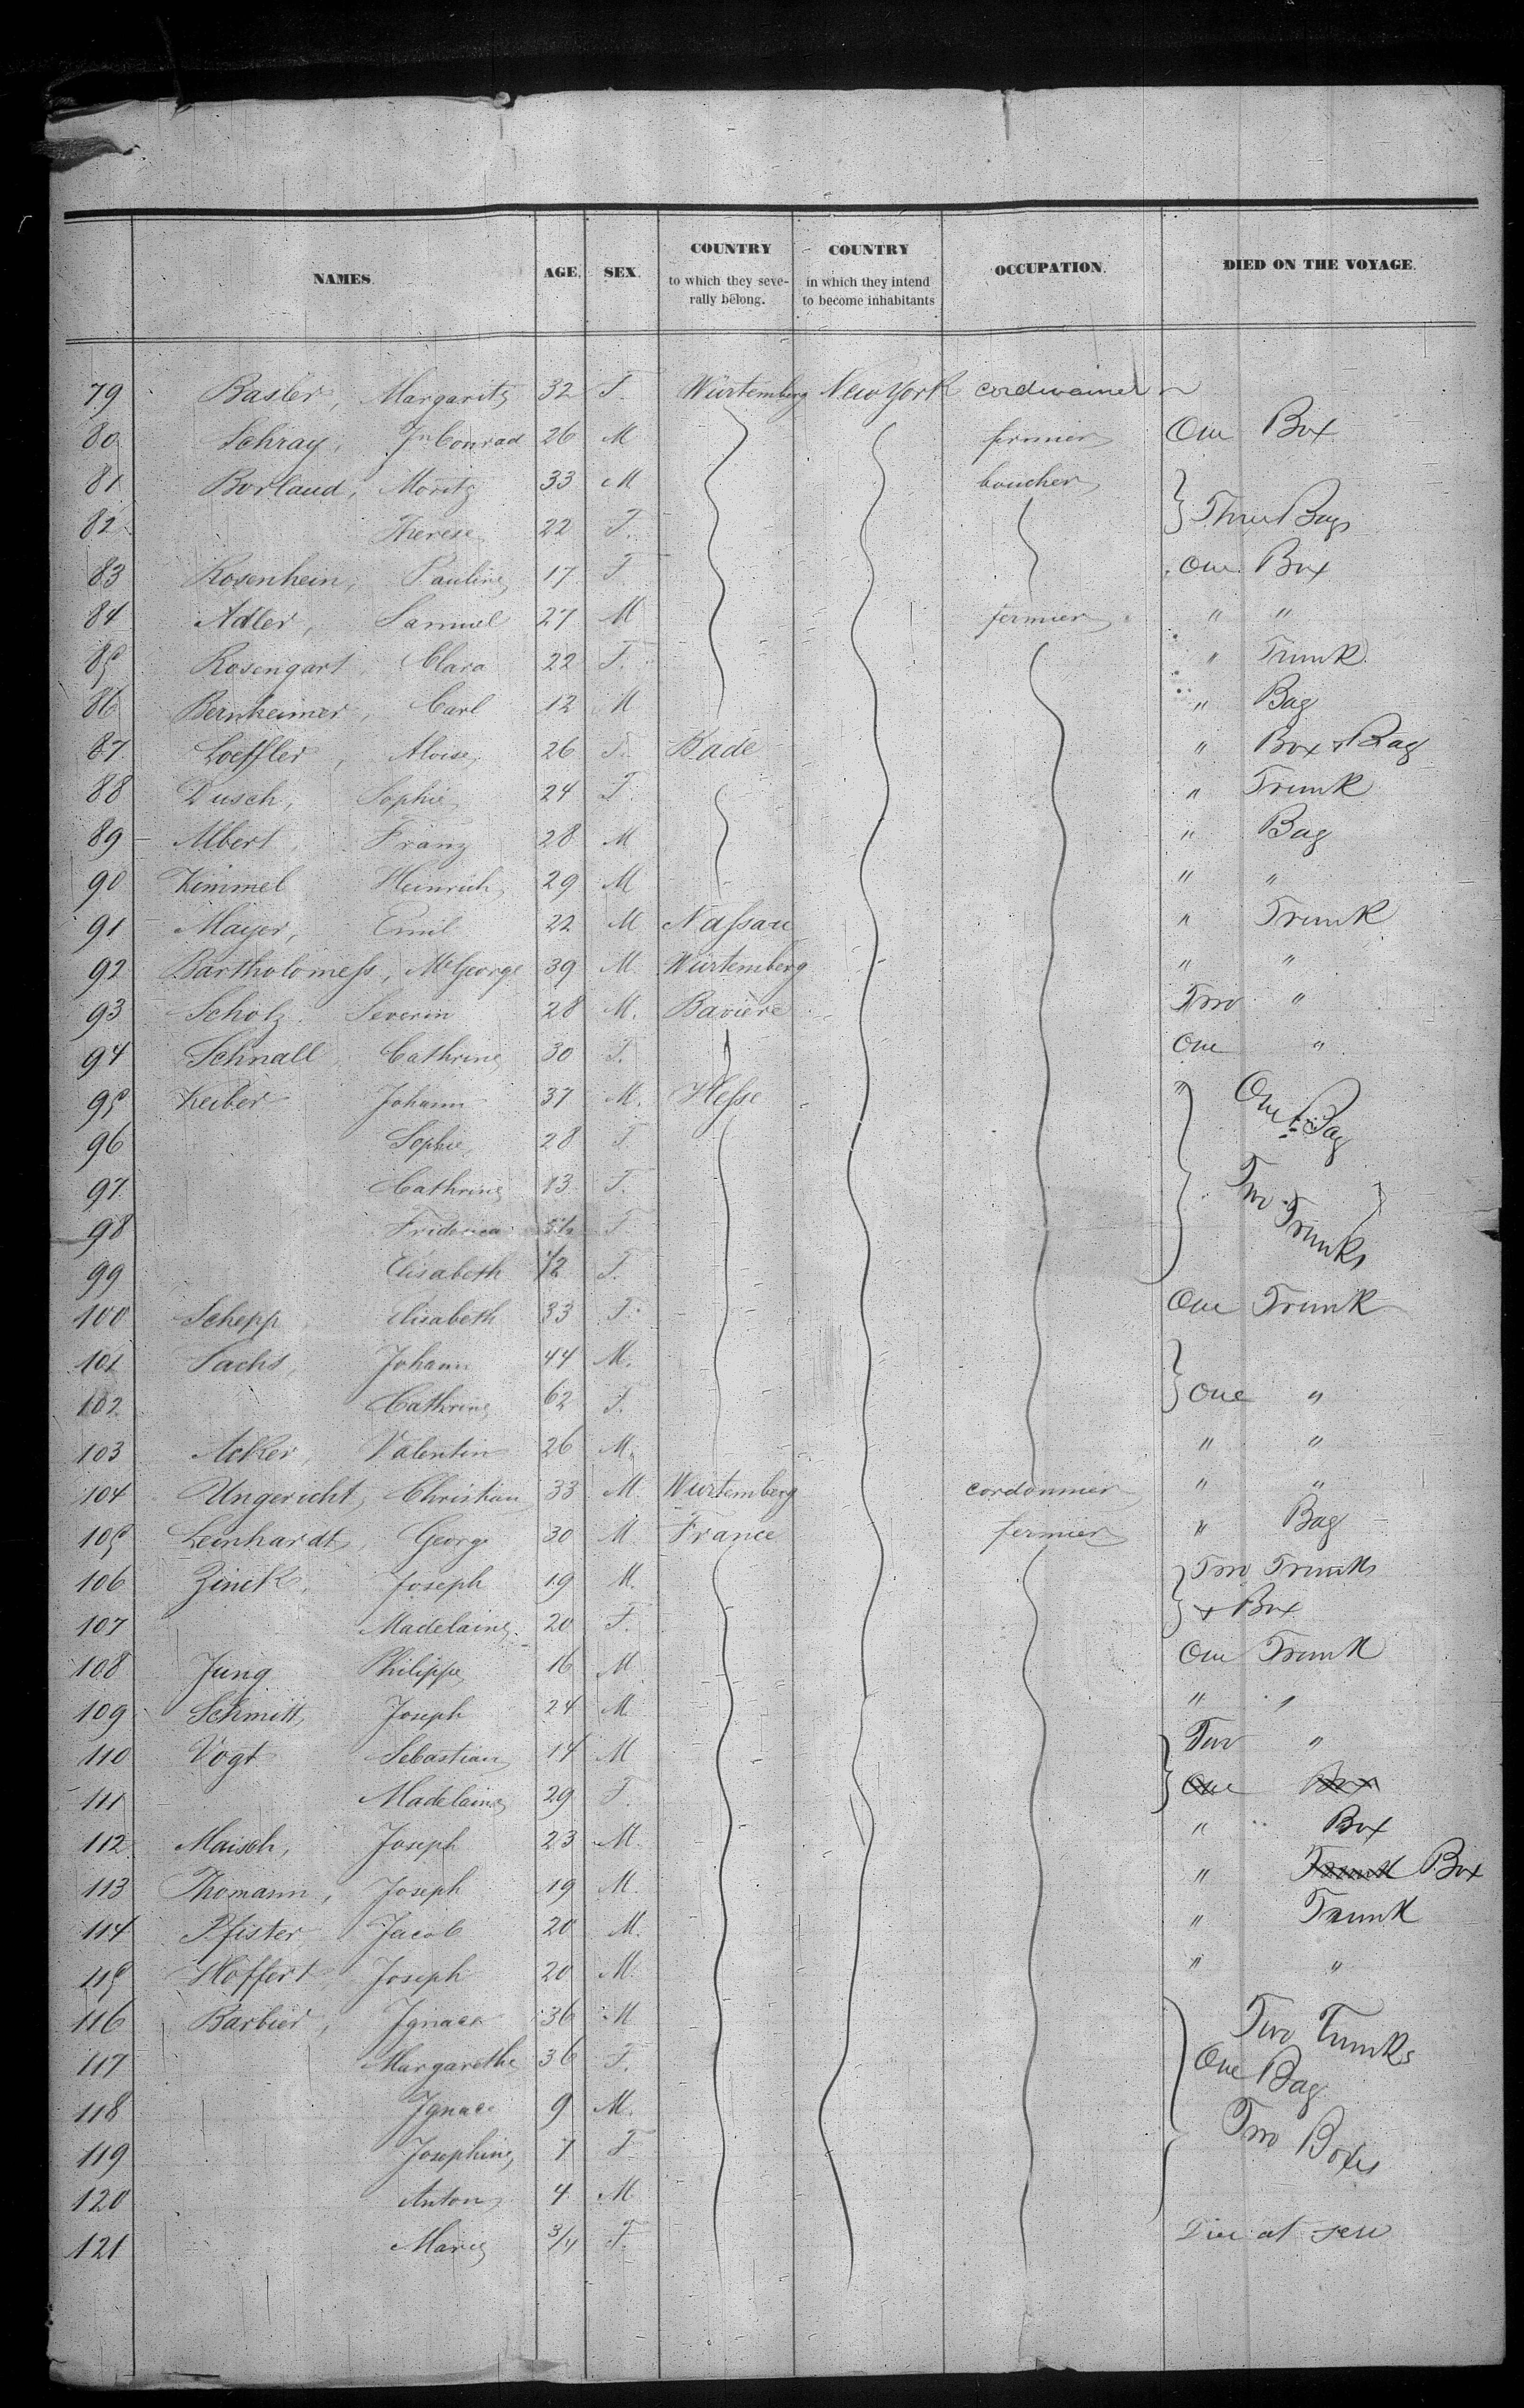 NAMES. AGE. SEX. COUNTRY to which they seve- rally belong. COUNTRY in which they intend to become inhabitants OCCUPATION. DIED ON THE VOYAGE.
79 Basler, Margarita 32 F. Würtemberg New York cordwainer
80 Schray, Jn Conrad 26 M fermier One Box
81 Borland, Moritz 33 M boucher
82 Therese 22 F. Three Bags
83 Rosenhein, Pauline 17 F One Box
84 Adler, Samuel 27 M fermier " "
85 Rosengart, Clara 22 F. " Trunk
86 Bernheimer, Carl 12 M " Bag
87 Loeffler, Aloise 26 F. Bade " Box & Bag
88 Dusch, Sophie 24 F. " Trunk
89 Albert, Franz 28 M " Bag
90 Kimmel Heinrich 29 M " "
91 Mayer, Emil 22 M Nassau " Trunk
92 Bartholomess, M George 39 M. Würtemberg " "
93 Scholz Severin 28 M. Bavière Two "
94 Schnall, Cathrine 30 F. One "
95 Keiber Johann 37 M. Hesse " One Bag
96 Sophie 28 F.
97 Cathrine 13 F. Two Trunks
98 Friderica F
99 Elisabeth 1/2 F.
100 Schepp Elisabeth 33 F. One Trunk
101 Sachs, Johann 44 M.
102 Cathrine 62 F. One "
103 Acker, Valentin 26 M. " "
104 Ungericht, Christian 33 M Wurtemberg cordonnier " "
105 Leinhardt, George 30 M France fermier " Bag
106 Zinck, Joseph 19 M. Two Trunks
107 Madelaine 20 F. & Box
108 Jung Philippe 16 M One Trunk
109 Schmitt, Joseph 24 M " "
110 Vogt Sebastian 14 M Two "
111 Madelaine 29 F. One Box
112 Maisch, Joseph 23 M. " Box
113 Thomann, Joseph 19 M. " Trunk Box
114 Pfister Jacob 20 M. " Trunk
115 Hoffert, Joseph 20 M. " "
116 Barbier, Ignace 36 M Two Trunks
117 Margarethe 36 F. One Bag
118 Ignace 9 M. Two Boxes
119 Josephine 7 F
120 Anton 4 M
121 Marie 3/4 F. Die at sea